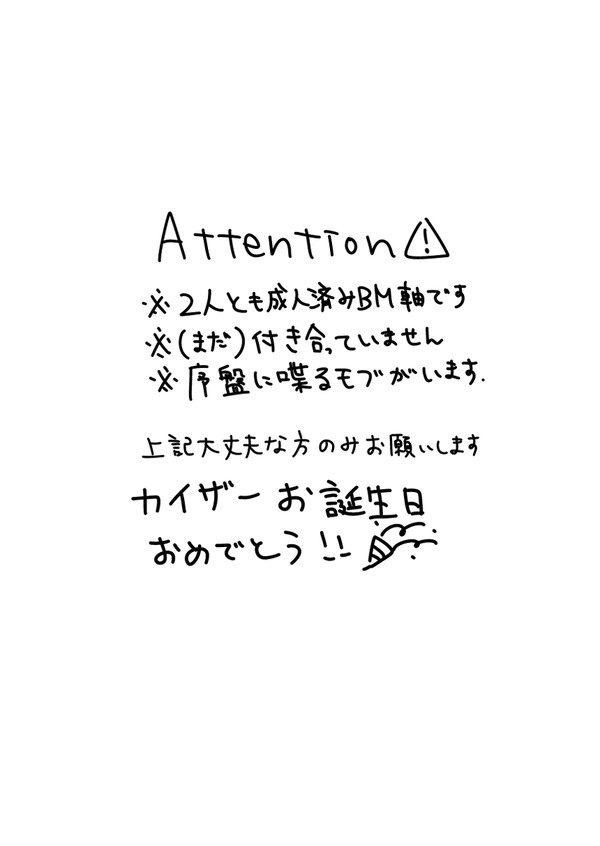 Attention
※2人とも成人済みBM軸です
※(まだ)付き合っていません
※序盤に喋るモブがいます.
上記大丈夫な方のみお願いします
カイザーお誕生日
おめでとう!!